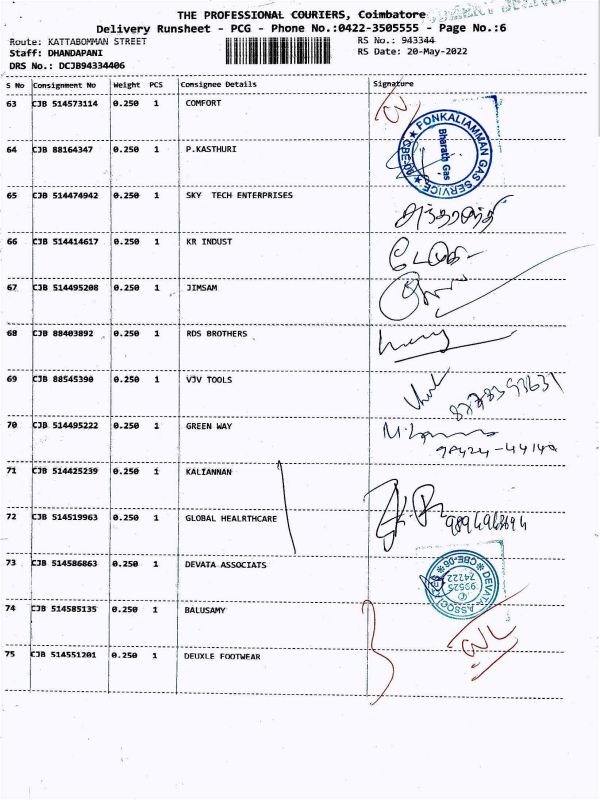 THE PROFESSIONAL COURIERS, Coimbatore
Delivery Runsheet - PCG - Phone No.:0422-3505555 - Page No.:6
Route: KATTABOMMAN STREET
RS No.: 943344
Staff: DHANDAPANI
RS Date: 20-May-2022
DRS No.: DCJB94334406
S No Consignment No Weight PCS Consignee Details Signature
63 CJB 514573114 0.250 1 COMFORT
PONKALIAMMAN GAS SERVICE
Bharath Gas
64 CJB 88164347 0.250 1 P.KASTHURI
65 CJB 514474942 0.250 1 SKY TECH ENTERPRISES
66 CJB 514414617 0.250 1 KR INDUST
67 CJB 514495208 0.250 1 JIMSAM
68 CJB 88403892 0.250 1 RDS BROTHERS
69 CJB 88545390 0.250 1 VJV TOOLS
70 CJB 514495222 0.250 1 GREEN WAY
71 CJB 514425239 0.250 1 KALIANNAN
72 CJB 514519963 0.250 1 GLOBAL HEALRTHCARE
73 CJB 514586863 0.250 1 DEVATA ASSOCIATS
74 CJB 514585135 0.250 1 BALUSAMY
75 CJB 514551201 0.250 1 DEUXLE FOOTWEAR